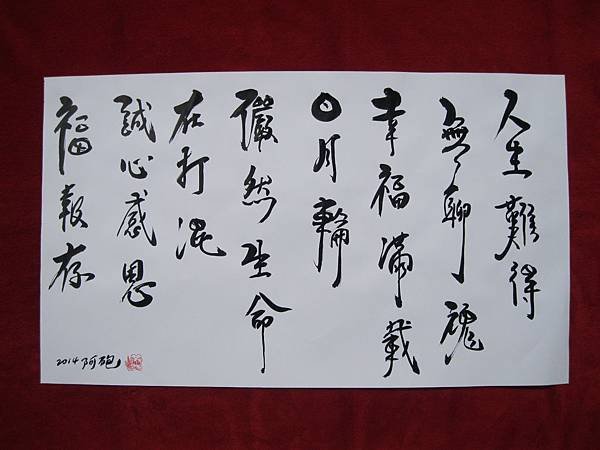 人生難得
無聊魂
幸福滿載
日月輪
儼然生命
在打混
誠心感恩
福報存
2014阿砲